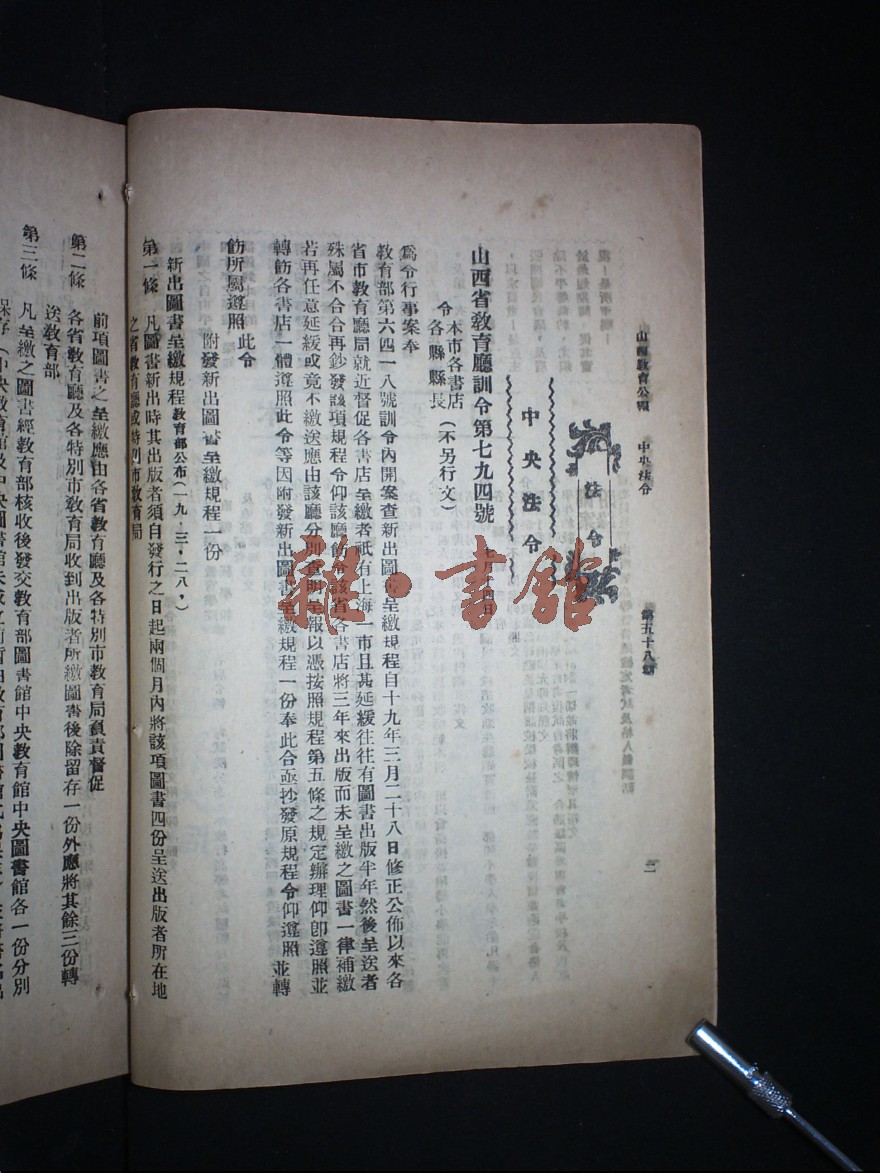 山西教育公報　中央法令　第五十八期　二
法令
中央法令
山西省教育廳訓令第七九四號
令
本市各書店
各縣縣長（不另行文）
爲令行事案奉
教育部第六四一八號訓令內開案查新出圖書呈繳規程自十九年三月二十八日修正公佈以來各
省市教育廳局就近督促各書店呈繳者祇有上海一市且甚延緩往往有圖書出版半年然後呈送者
殊屬不合合再鈔發該項規程令仰該廳飭令該省各書店將三年來出版而未呈繳之圖書一律補繳
若再任意延緩或竟不繳送應由該廳分別查明呈報以憑按照規程第五條之規定辦理仰卽遵照並
轉飭各書店一體遵照此令等因附發新出圖書呈繳規程一份奉此合亟抄發原規程令仰遵照並轉
飭所屬遵照　此令
附發新出圖書呈繳規程一份
新出圖書呈繳規程教育部公布（一九・三・二八・）
第一條　凡圖書新出時其出版者須自發行之日起兩個月內將該項圖書四份呈送出版者所在地
之省教育廳或特別市教育局
前項圖書之呈繳應由各省教育廳及各特別市教育局負責督促
第二條　各省教育廳及各特別市教育局收到出版者所繳圖書後除留存一份外應將其餘三份轉
送教育部
第三條　凡呈繳之圖書經教育部核收後發交教育部圖書館中央教育館中央圖書館各一份分別
保存（中央教育館及中央圖書館未成立前暫由教育部圖書館
雜・書館